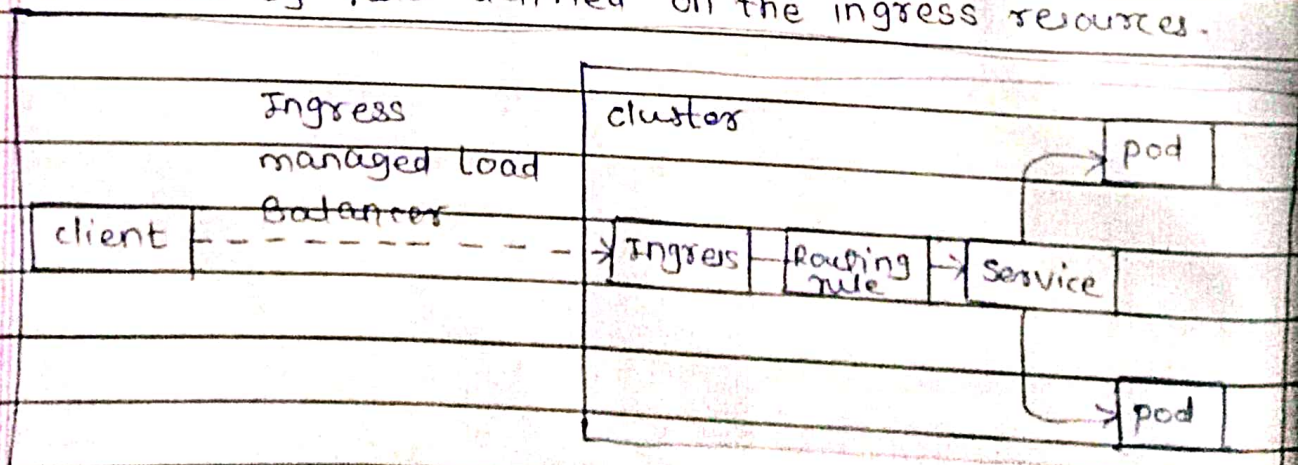 on the ingress resources.
Ingress
managed load
Balancer
cluster
pod
client
Ingress
Routing
rule
Service
pod